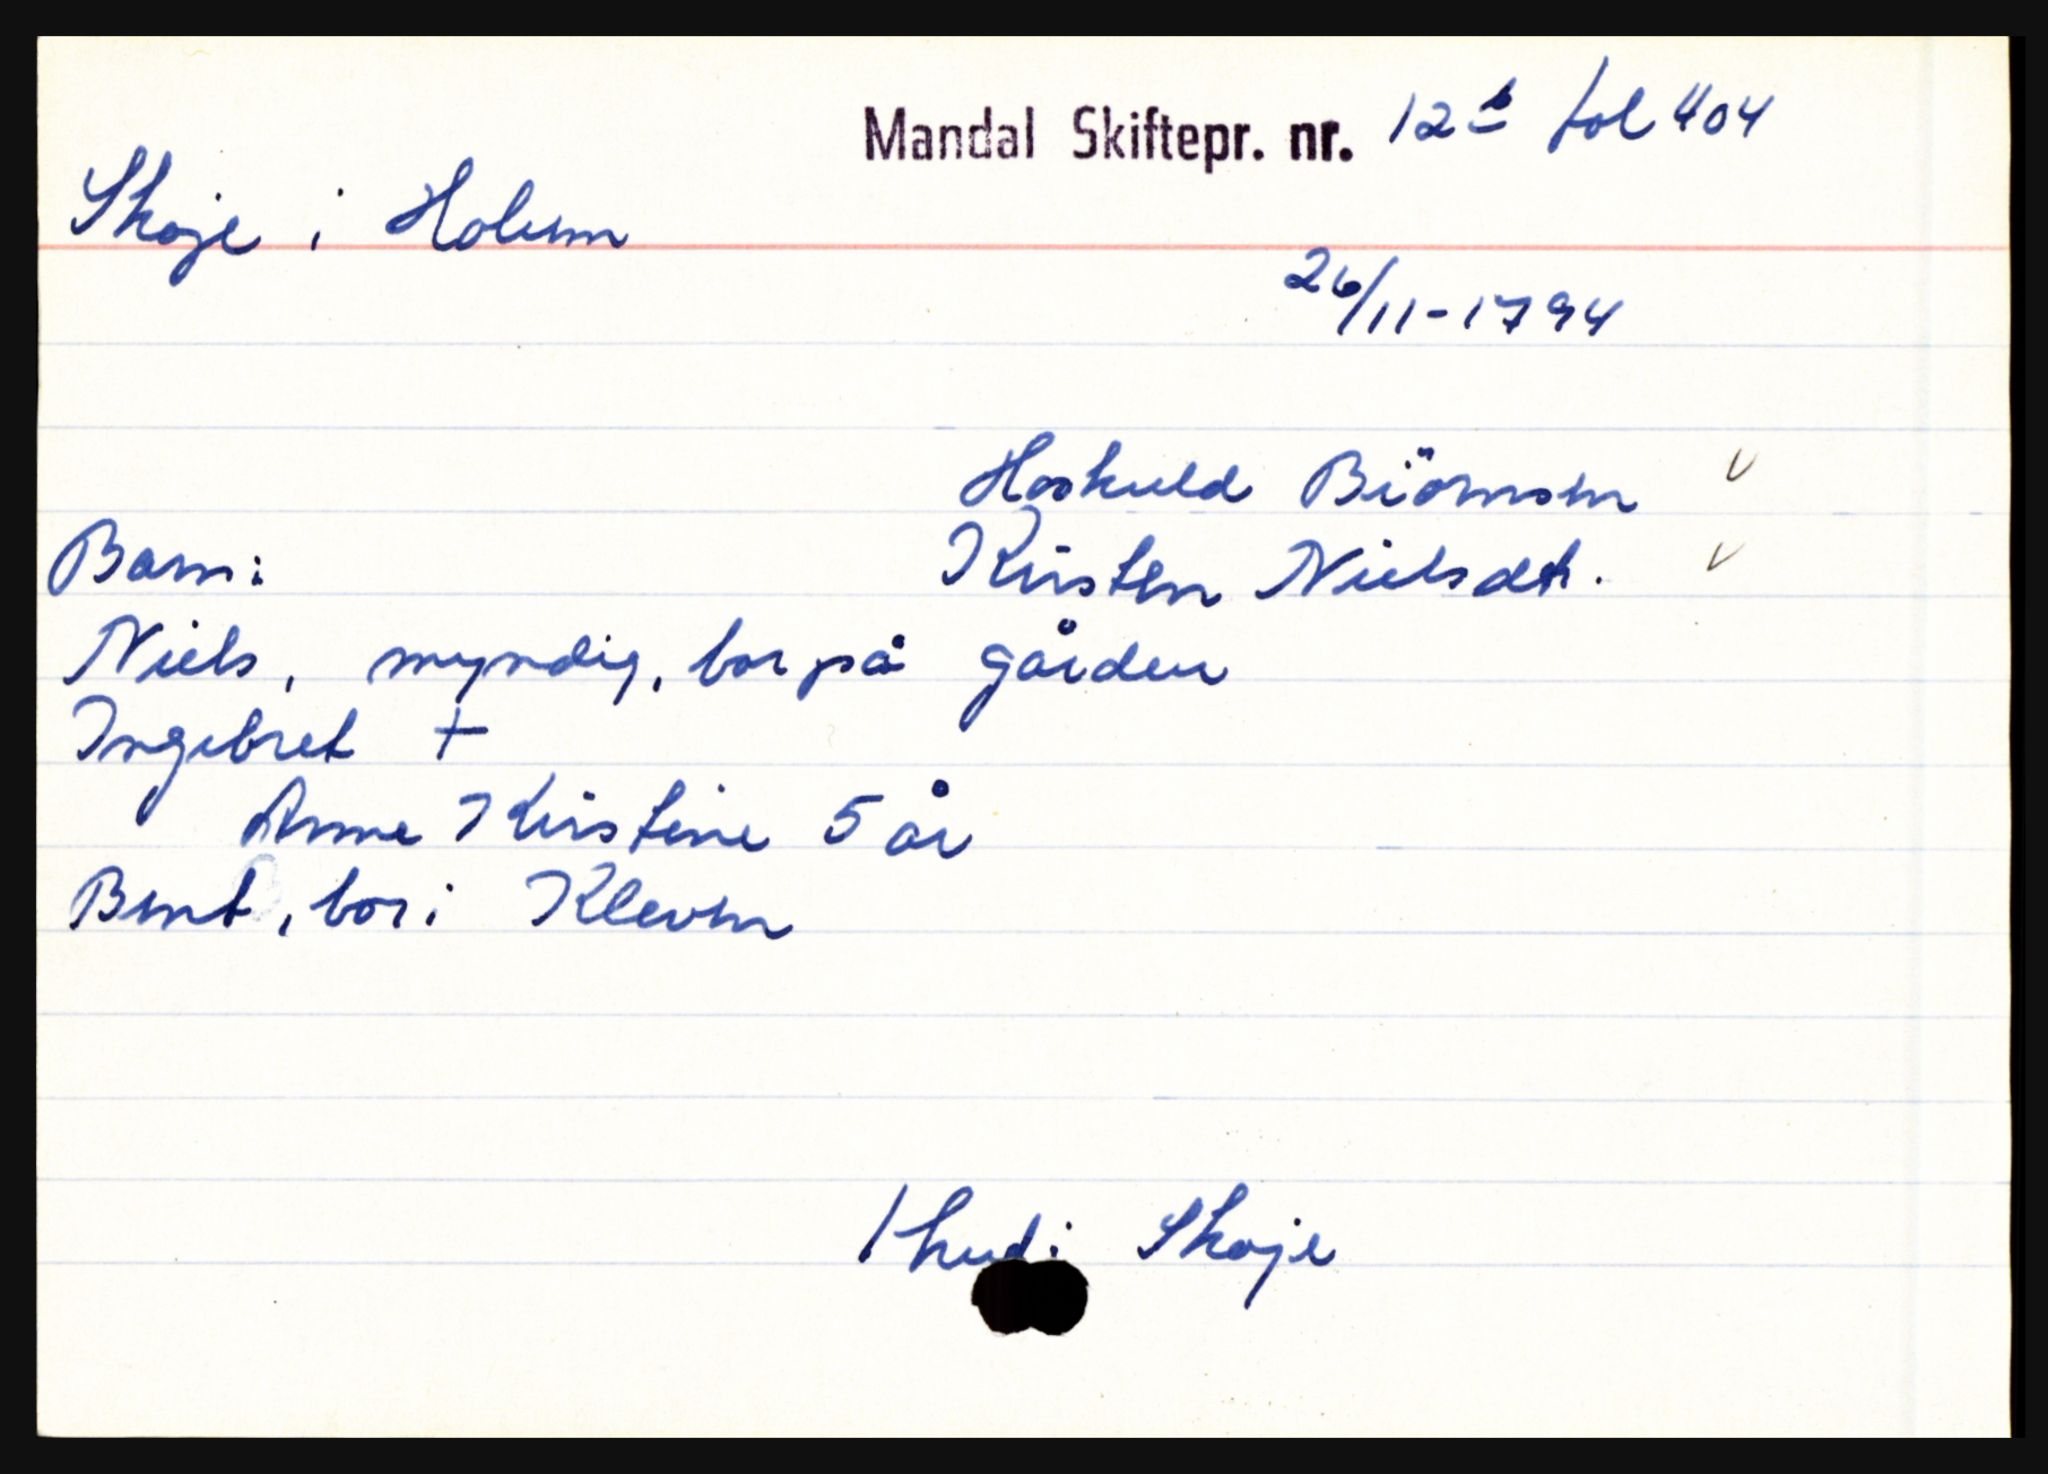 Mandal Skiftepr. nr. 12 b fol 404
Skoje i Holum
26/11-1794
Hoskuld Biörnsen v
Barn: Kirsten Nielsdtr. v
Niels, myndig, bor på gården
Ingebret +
Anne Kirstine 5 år
Bent, bor i Kleven
1 hud i Skoje